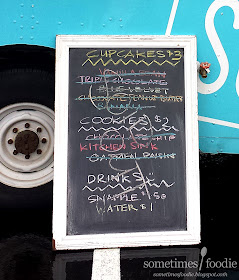 CUPCAKES $3
VANILLA BEAN
TRIPLE CHOCOLATE
BLUE VELVET
CHOCOLATE PEANUT BUTTER
COOKIES $2
CHOCOLATE CHIP
KITCHEN SINK
OATMEAL RAISIN
DRINKS
SNAPPLE 1.50
WATER $1
sometimes foodie
sometimesfoodie.blogspot.com